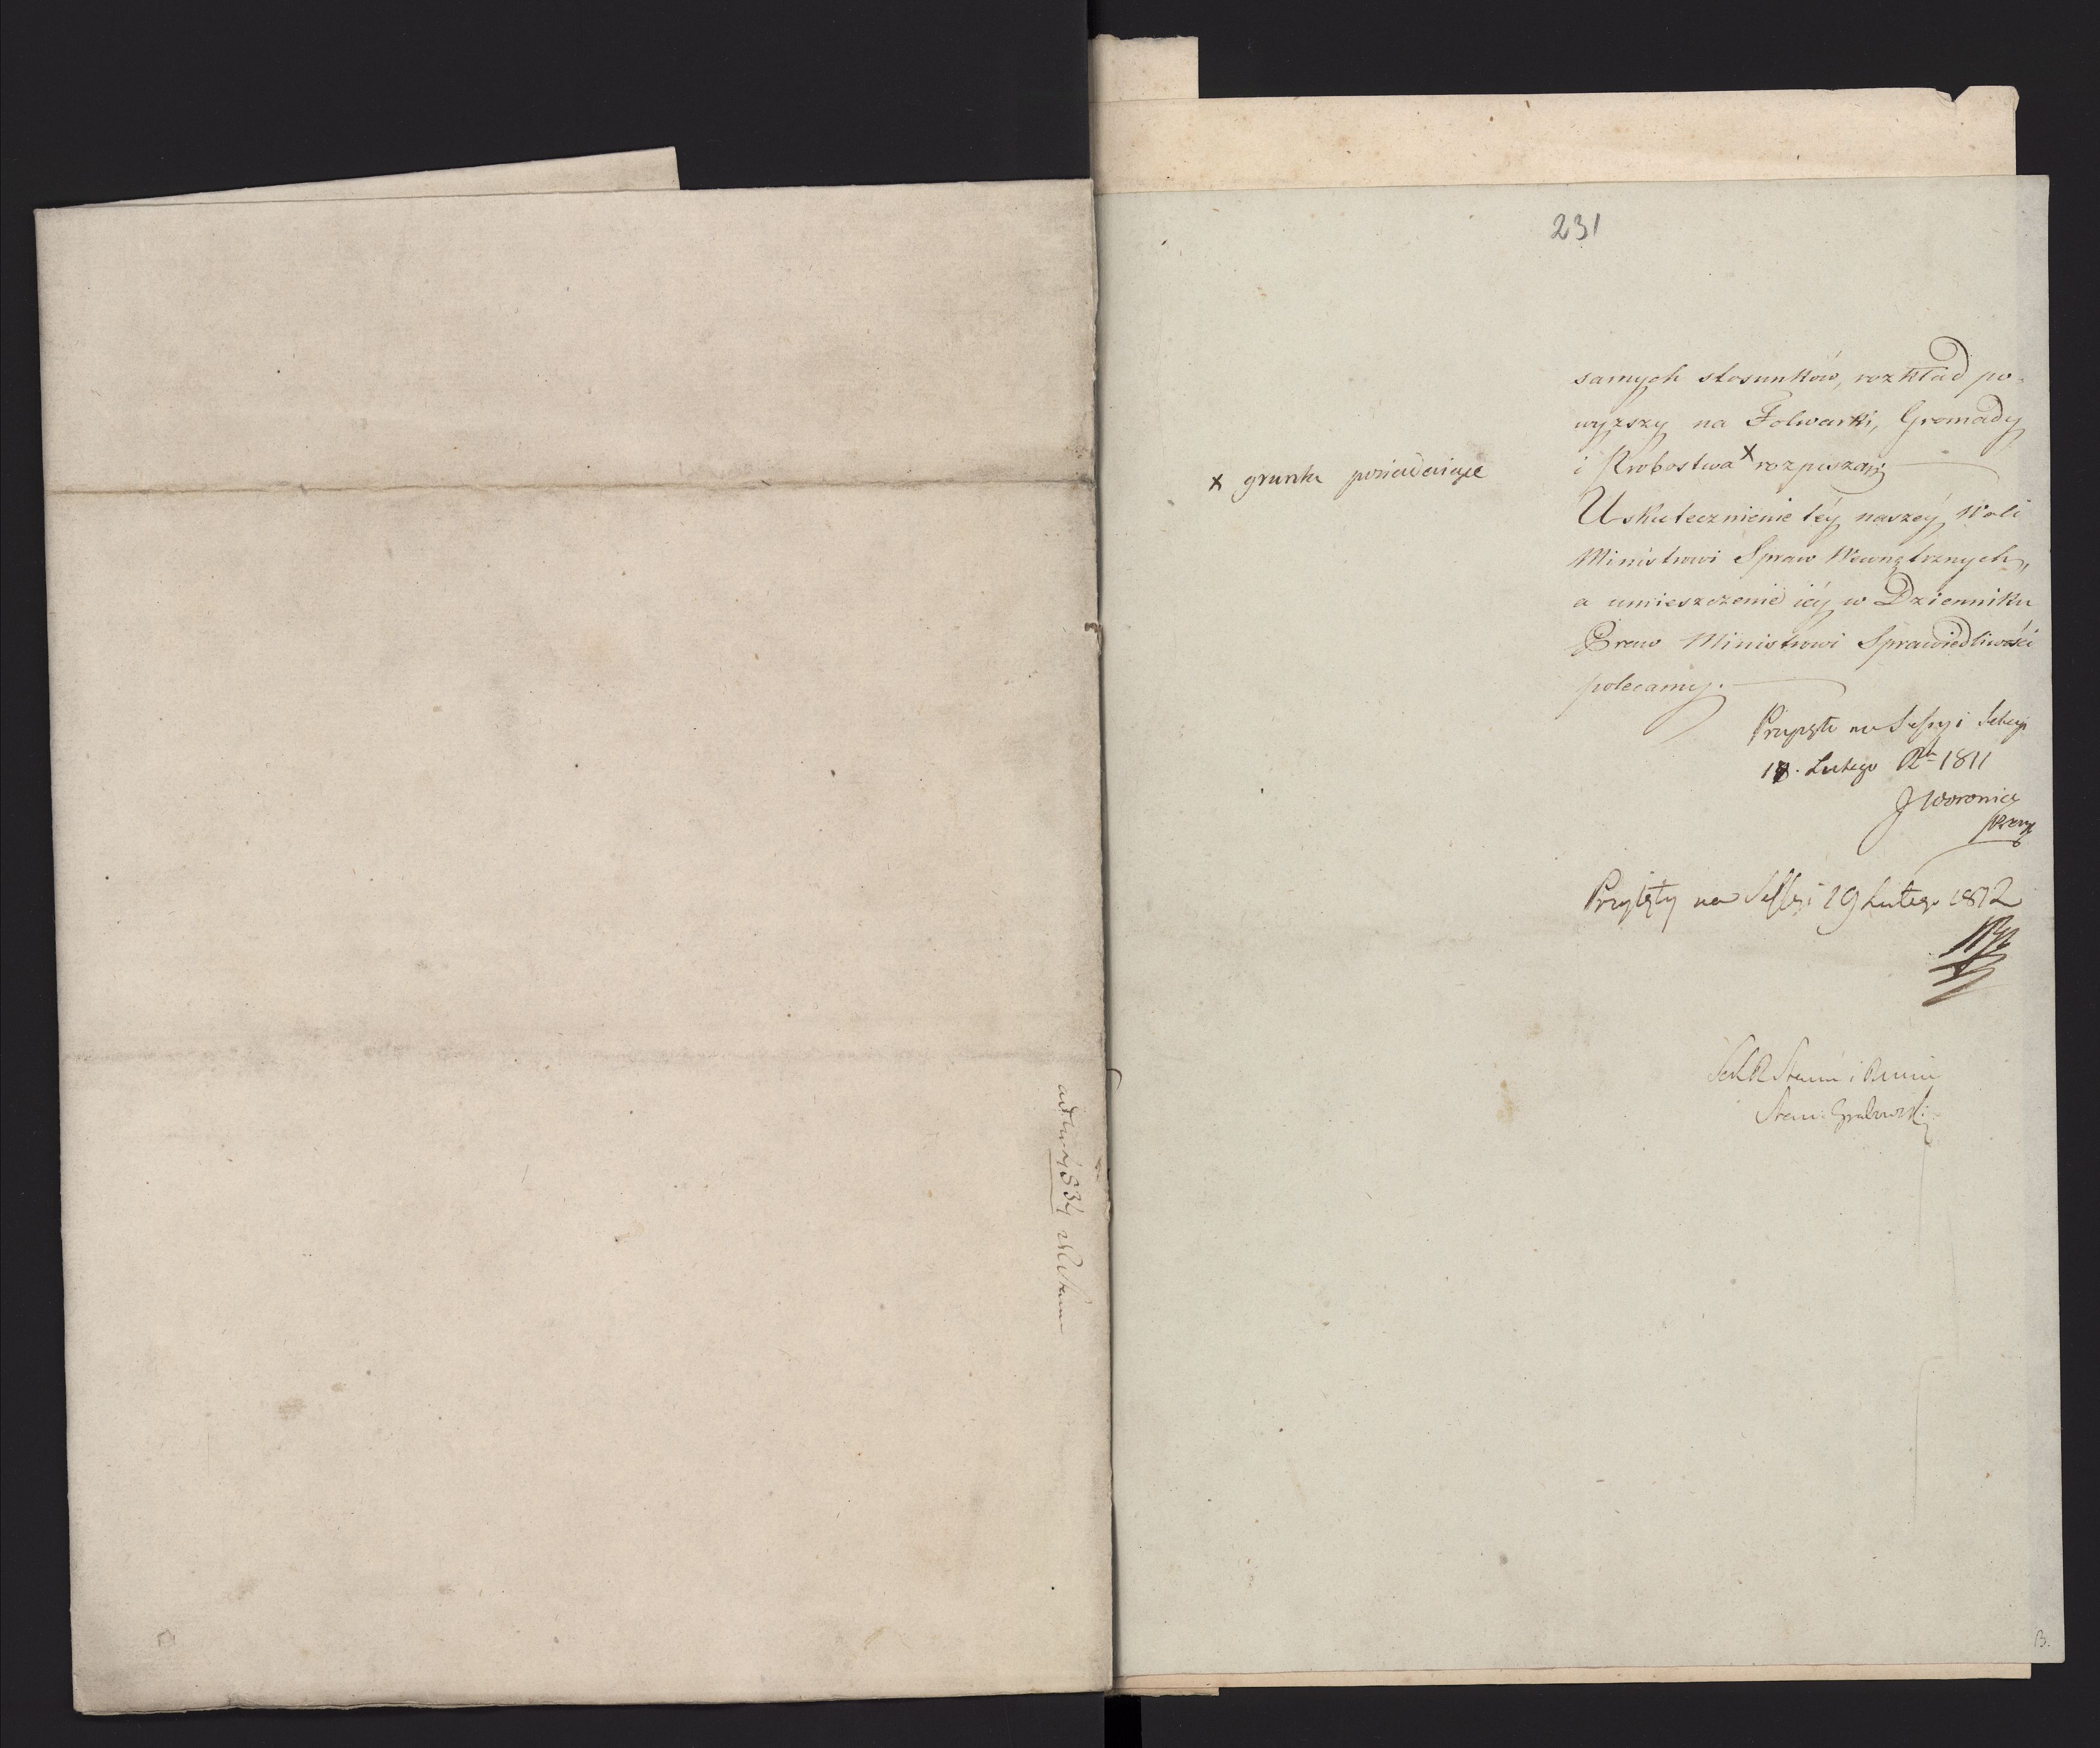 231
samych stosunków, rozkład po-
wyższy na Folwarki, Gromady
i Probostwa x rozpisząc
x grunta posiadaiące
Uskutecznienie téy naszéy Woli
Ministrowi Spraw Wewnętrznych,
a umieszczenie iéy w Dzienniku
Praw Ministrowi Sprawiedliwości
polecamy.
Przyięte na Sessyi Sekcyi
18. Lutego 1811
J Woronicz
Przyięty na Sessyi 19 Lutego 1812
Stan: Grabowski
834
B.